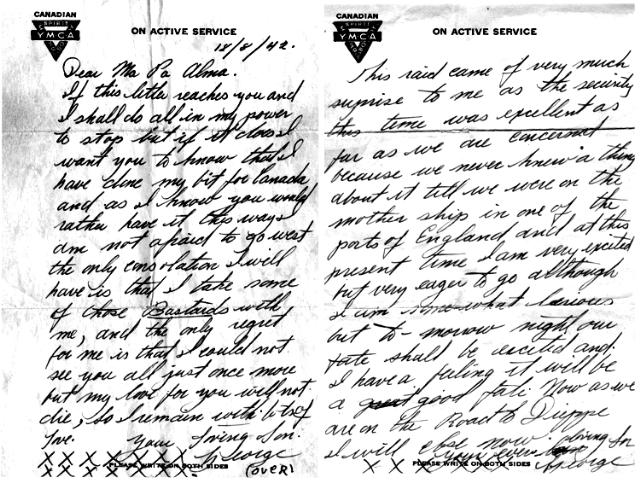 CANADIAN
SPIRIT
YMCA
ON ACTIVE SERVICE
18/8/42.
Dear Ma Pa Alma.
If this letter reaches you and
I shall do all in my power
to stop but if it does I
want you to know that I
have done my bit for Canada
and as I know you would
rather have it this way I
am not afraid to go west
the only consolation I will
have is that I take some
of those Bastards with
me, and the only regret
for me is that I could not
see you all just once more
but my love for you will not
die, so I remain with lots of
love. Your loving Son.
George
XXXXXXXXX
PLEASE WRITE ON BOTH SIDES
(OVER)
CANADIAN
SPIRIT
YMCA
ON ACTIVE SERVICE
This raid came of very much
suprise to me as the security
this time was excellent as
far as we are concerned
because we never knew a thing
about it till we were on the
mother ship in one of the
ports of England and at this
present time I am very excited
but very eager to go although
I am somewhat
but to-morrow night our
fate shall be and
I have a feeling it will be
a great good fate. Now as we
are on the Road to Dieppe
I will close now.
your ever loving Son
George
PLEASE WRITE ON BOTH SIDES